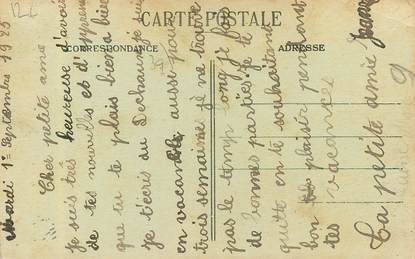 126
CARTE POSTALE
CORRESPONDANCE
ADRESSE
Mardi 1er Septembre 1925
Cher petite amie
Je suis très heureuse d'avoir
de tes nouvelles et d'apprendre
que tu te plais bien a
je t'écris du Dechaux je suis
en vacances aussi pour
trois semaines je ne trouve
pas le temps long je fais
de bonnes parties. je te
quitte en te souhaitant
bon plaisir pendant
tes vacances
Ta petite amie